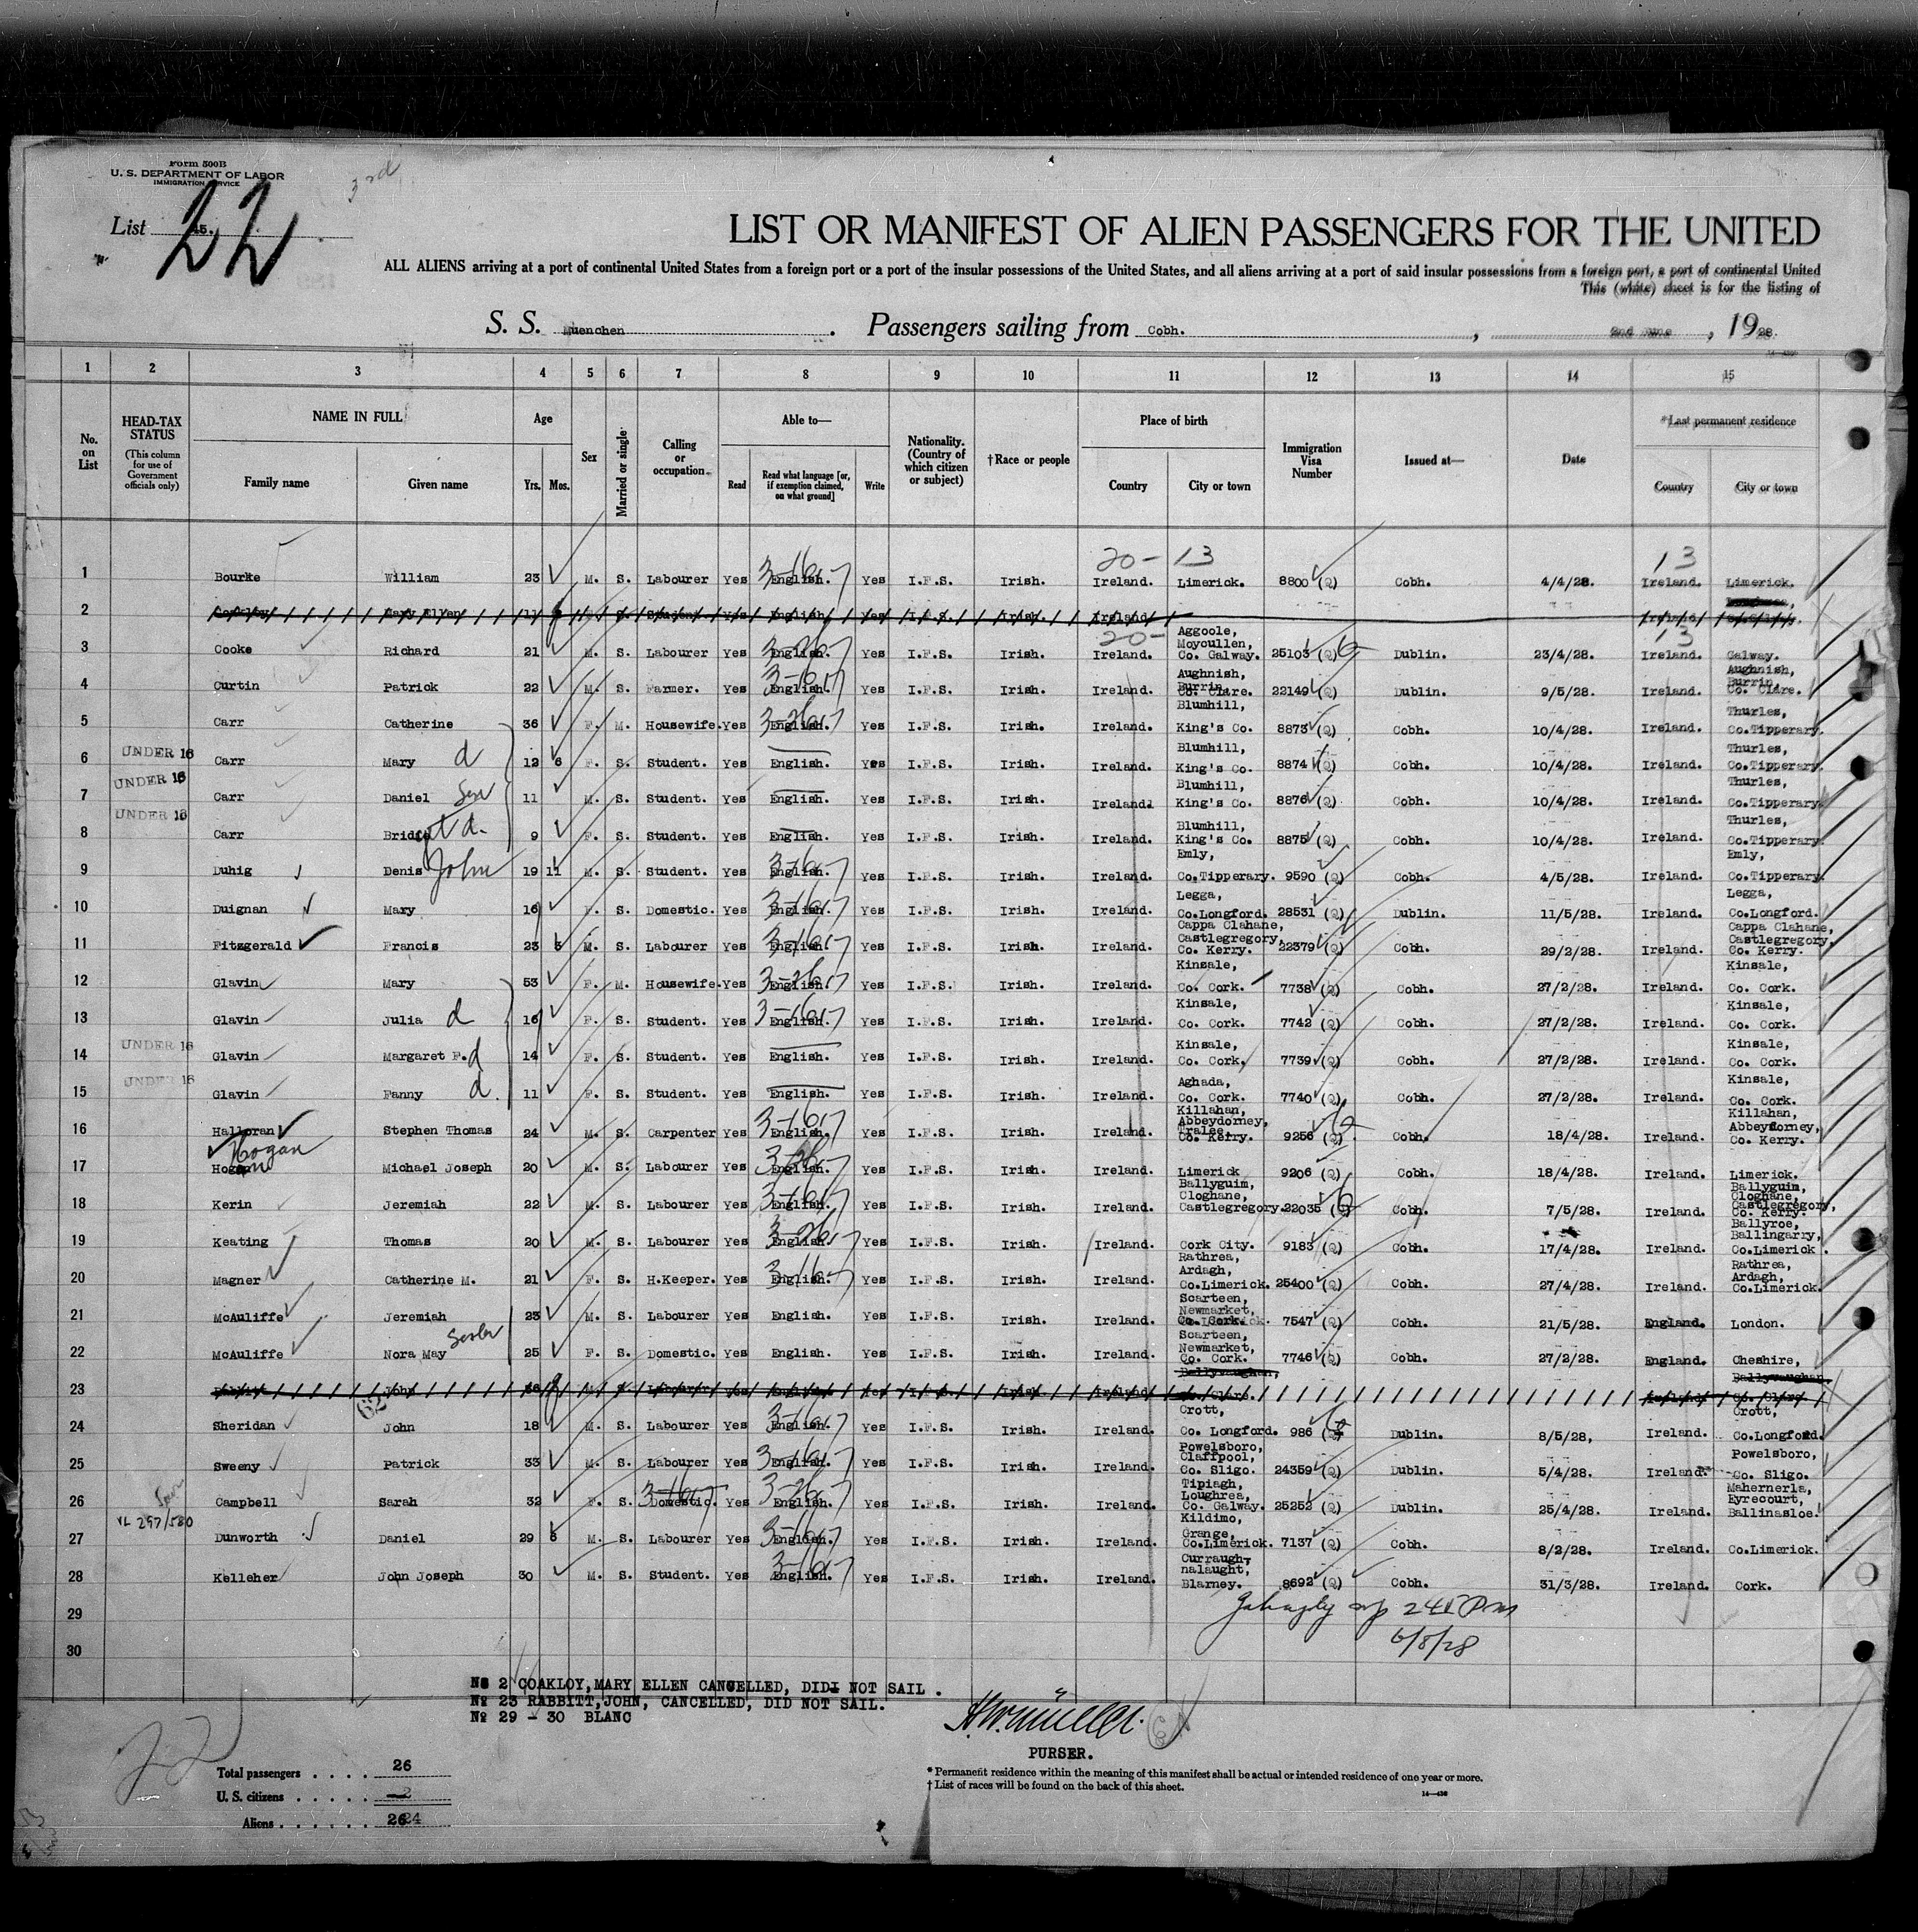 Form 500B
U. S. DEPARTMENT OF LABOR
IMMIGRATION SERVICE
3rd
List 22
LIST OR MANIFEST OF ALIEN PASSENGERS FOR THE UNITED
ALL ALIENS arriving at a port of continental United States from a foreign port or a port of the insular possessions of the United States, and all aliens arriving at a port of said insular possessions from a foreign port, a port of continental United
This (white) sheet is for the listing of
S. S. Muenchen. Passengers sailing from Cobh. , 2nd June , 1928.
1 2 3 4 5 6 7 8 9 10 11 12 13 14 15
No. on List HEAD-TAX STATUS (This column for use of Government officials only) NAME IN FULL Age Sex Married or single Calling or occupation Able to— Nationality. (Country of which citizen or subject) †Race or people Place of birth Immigration Visa Number Issued at— Date *Last permanent residence
Family name Given name Yrs. Mos. Read Read what language [or, if exemption claimed, on what ground] Write Country City or town Country City or town
20- 13 13
1 Bourke William 23 M. S. Labourer Yes English. Yes I.F.S. Irish. Ireland. Limerick. 8800 (Q) Cobh. 4/4/28. Ireland. Limerick.
2 Mary Ellen 11 Student Yes English Yes I.F.S. Irish. Ireland.
3 Cooke Richard 21 M. S. Labourer Yes English. Yes I.F.S. Irish. Ireland. Aggoole, Moycullen, Co. Galway. 25103 (Q) Dublin. 23/4/28. Ireland. Galway.
4 Curtin Patrick 22 M. S. Farmer. Yes English. Yes I.F.S. Irish. Ireland. Aughnish, Burrin, Co. Clare. 22149 (Q) Dublin. 9/5/28. Ireland. Aughnish, Burrin, Co. Clare.
5 Carr Catherine 36 F. M. Housewife. Yes English. Yes I.F.S. Irish. Ireland. Blumhill, King's Co. 8873 (Q) Cobh. 10/4/28. Ireland. Thurles, Co.Tipperary.
6 UNDER 16 Carr Mary d 12 6 F. S. Student. Yes English. Yes I.F.S. Irish. Ireland. Blumhill, King's Co. 8874 (Q) Cobh. 10/4/28. Ireland. Thurles, Co.Tipperary.
7 UNDER 16 Carr Daniel Son 11 M. S. Student. Yes English. Yes I.F.S. Irish. Ireland. Blumhill, King's Co. 8876 (Q) Cobh. 10/4/28. Ireland. Thurles, Co.Tipperary.
8 UNDER 16 Carr Bridget d. 9 F. S. Student. Yes English. Yes I.F.S. Irish. Ireland. Blumhill, King's Co. 8875 (Q) Cobh. 10/4/28. Ireland. Thurles, Co.Tipperary.
9 Duhig Denis John 19 11 M. S. Student. Yes English. Yes I.F.S. Irish. Ireland. Emly, Co.Tipperary. 9590 (Q) Cobh. 4/5/28. Ireland. Emly, Co.Tipperary.
10 Duignan Mary 16 F. S. Domestic. Yes English. Yes I.F.S. Irish. Ireland. Legga, Co.Longford. 28531 (Q) Dublin. 11/5/28. Ireland. Legga, Co.Longford.
11 Fitzgerald Francis 23 3 M. S. Labourer Yes English. Yes I.F.S. Irish. Ireland. Cappa Clahane, Castlegregory, Co. Kerry. 22379 (Q) Cobh. 29/2/28. Ireland. Cappa Clahane, Castlegregory, Co. Kerry.
12 Glavin Mary 53 F. M. Housewife. Yes English. Yes I.F.S. Irish. Ireland. Kinsale, Co. Cork. 7738 (Q) Cobh. 27/2/28. Ireland. Kinsale, Co. Cork.
13 Glavin Julia d 16 F. S. Student. Yes English. Yes I.F.S. Irish. Ireland. Kinsale, Co. Cork. 7742 (Q) Cobh. 27/2/28. Ireland. Kinsale, Co. Cork.
14 UNDER 16 Glavin Margaret F. d 14 F. S. Student. Yes English. Yes I.F.S. Irish. Ireland. Kinsale, Co. Cork, 7739 (Q) Cobh. 27/2/28. Ireland. Kinsale, Co. Cork.
15 UNDER 16 Glavin Fanny d. 11 F. S. Student. Yes English. Yes I.F.S. Irish. Ireland. Aghada, Co. Cork. 7740 (Q) Cobh. 27/2/28. Ireland. Kinsale, Co. Cork.
16 Halloran Stephen Thomas 24 M. S. Carpenter Yes English. Yes I.F.S. Irish. Ireland. Killahan, Abbeydorney, Tralee, Co. Kerry. 9256 (Q) Cobh. 18/4/28. Ireland. Killahan, Abbeydorney, Co. Kerry.
17 Hogan Michael Joseph 20 M. S. Labourer Yes English. Yes I.F.S. Irish. Ireland. Limerick 9206 (Q) Cobh. 18/4/28. Ireland. Limerick.
18 Kerin Jeremiah 22 M. S. Labourer Yes English. Yes I.F.S. Irish. Ireland. Ballyguim, Cloghane, Castlegregory. 22035 (Q) Cobh. 7/5/28. Ireland. Ballyguim, Cloghane, Castlegregory, Co. Kerry.
19 Keating Thomas 20 M. S. Labourer Yes English. Yes I.F.S. Irish. Ireland. Cork City. 9183 (Q) Cobh. 17/4/28. Ireland. Ballyroe, Ballingarry, Co.Limerick.
20 Magner Catherine M. 21 F. S. H.Keeper. Yes English. Yes I.F.S. Irish. Ireland. Rathrea, Ardagh, Co.Limerick. 25400 (Q) Cobh. 27/4/28. Ireland. Rathrea, Ardagh, Co.Limerick.
21 McAuliffe Jeremiah 23 M. S. Labourer Yes English. Yes I.F.S. Irish. Ireland. Scarteen, Newmarket, Co. Cork. 7547 (Q) Cobh. 21/5/28. England. London.
22 McAuliffe Nora May Sister 25 F. S. Domestic. Yes English. Yes I.F.S. Irish. Ireland. Scarteen, Newmarket, Co. Cork. 7746 (Q) Cobh. 27/2/28. England. Cheshire,
23 John Labourer Yes English Yes Irish Ireland Ballyvaughan, Co. Clare. Ireland Ballyvaughan, Co. Clare
24 Sheridan John 18 M. S. Labourer Yes English. Yes I.F.S. Irish. Ireland. Crott, Co. Longford. 986 (Q) Dublin. 8/5/28, Ireland. Crott, Co.Longford.
25 Sweeny Patrick 33 M. S. Labourer Yes English. Yes I.F.S. Irish. Ireland. Powelsboro, Claffpool, Co. Sligo. 24359 (Q) Dublin. 5/4/28. Ireland. Powelsboro, Co. Sligo.
26 Campbell Sarah 32 F. S. Domestic. Yes English. Yes I.F.S. Irish. Ireland. Tipiagh, Loughrea, Co. Galway. 25252 (Q) Dublin. 25/4/28. Ireland. Mahernerla, Eyrecourt, Ballinasloe.
27 VL 297/580 Dunworth Daniel 29 6 M. S. Labourer Yes English. Yes I.F.S. Irish. Ireland. Kildimo, Grange, Co.Limerick. 7137 (Q) Cobh. 8/2/28. Ireland. Co.Limerick.
28 Kelleher John Joseph 30 M. S. Student. Yes English. Yes I.F.S. Irish. Ireland. Curraugh-nalaught, Blarney. 8692 (Q) Cobh. 31/3/28. Ireland. Cork.
29
30
6/8/28
No 2 COAKLOY,MARY ELLEN CANCELLED, DID NOT SAIL.
No 23 RABBITT,JOHN, CANCELLED, DID NOT SAIL.
No 29 - 30 BLANC
22
PURSER.
Total passengers . . . . 26
U. S. citizens . . . . .
Aliens . . . . . . 2624
* Permanent residence within the meaning of this manifest shall be actual or intended residence of one year or more.
† List of races will be found on the back of this sheet.